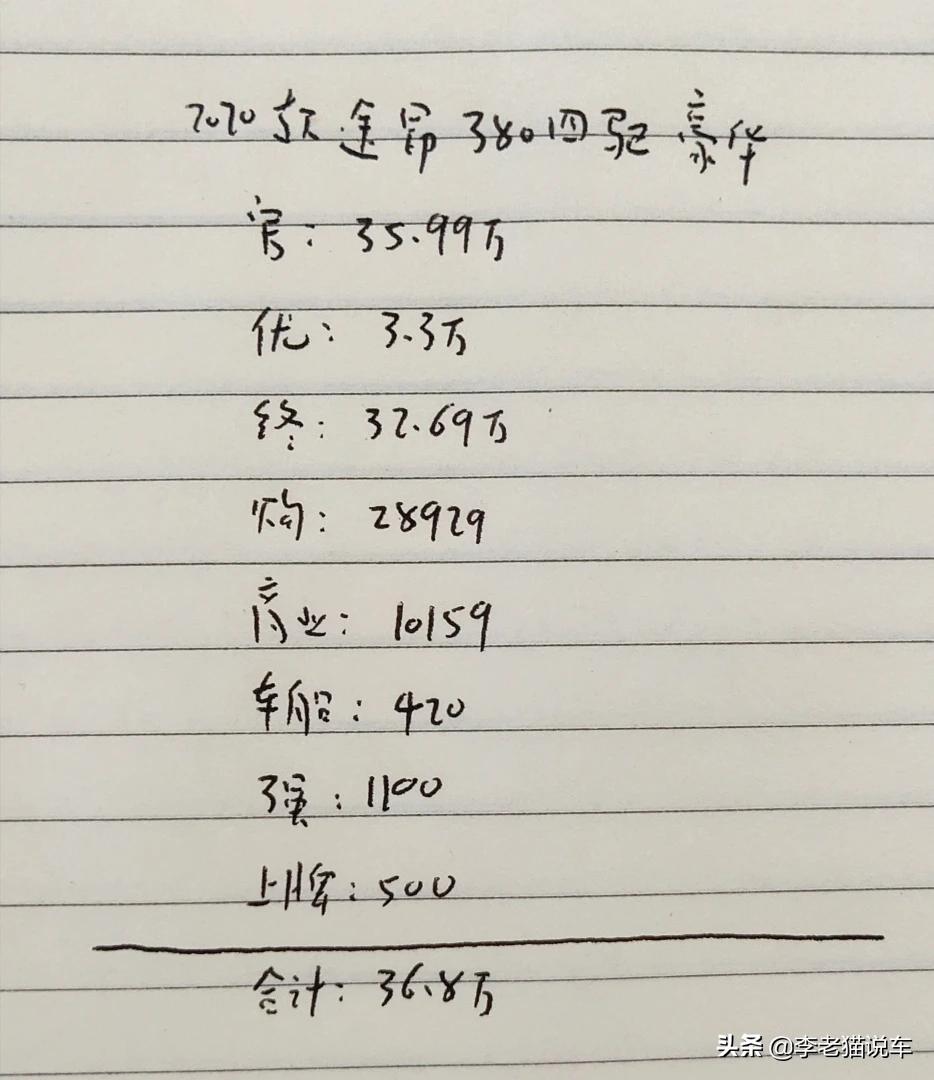 2020款途昂380四驱豪华
官：35.99万
优：3.3万
终：32.69万
购：28929
商业：10159
车船：420
强：1100
上牌：500
合计：36.8万
头条 @李老猫说车